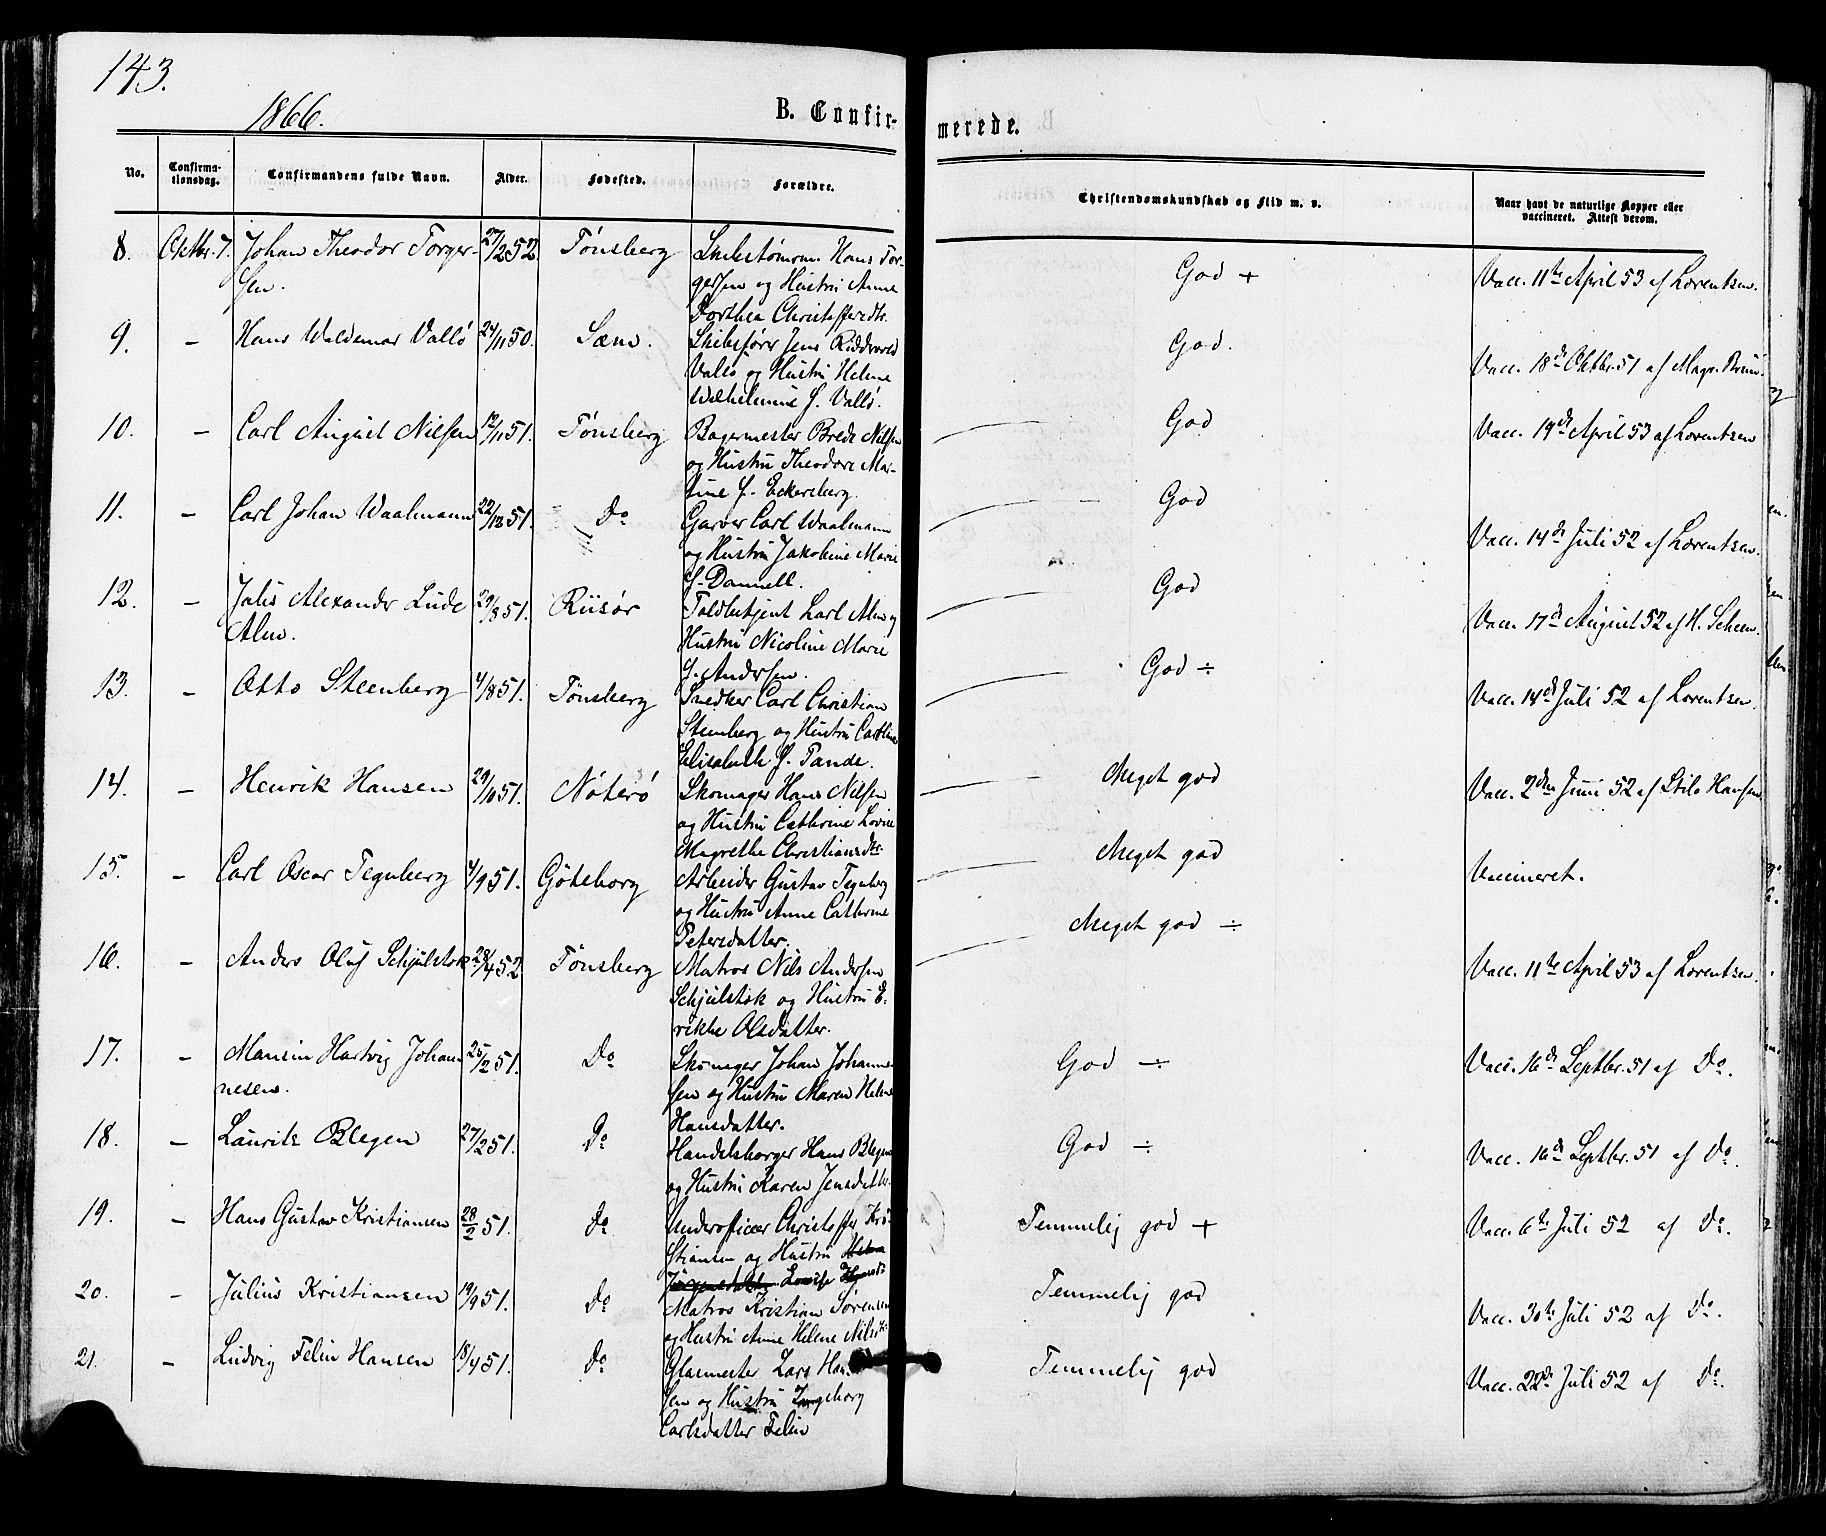 143.
1866.
B. Confir-
merede.
No.
Confirma-
tionsdag.
Confirmandens fulde Navn.
Alder.
Fødested.
Forældre.
Christendomskundskab og Flid m. v.
Naar havt de naturlige Kopper eller
vaccineret. Attest derom.
8. Oktbr. 7. Johan Theodor Torger- 27/2 52. Tønsberg Skibstømrm. Hans Tor-
sen. gersen og Hustru Anne
Dorthea Christoffersdtr.
God +
Vacc. 11te April 53 af Lorentsen.
9. – Hans Waldemar Vallö 24/11 50. Sæm. Skibsfører Jens Riddervold
Vallö og Hustru Helene
Wilhelmine f. Vallö.
God.
Vacc. 18de Oktbr. 51 af Magn. Bruun.
10. – Carl August Nilsen 12/11 51. Tønsberg Bagermester Brede Nilsen
og Hustru Theodore Mar-
tine f. Eckersberg.
God
Vacc. 19de April 53 af Lorentsen
11. – Carl Johan Waalmann 22/12 51. Do Garver Carl Waalmann
og Hustru Jakobine Marie
f. Dannell.
God
Vacc. 14de Juli 52 af Lorentsen.
12. – Julis Alexander Lude 29/8 51. Riisør Toldbetjent Carl Alm og
Alm. Hustru Nicoline Marie
f. Andersen.
God
Vacc. 17de August 52 af H. Scheen.
13. – Otto Steenberg 4/8 51. Tønsberg Snedker Carl Christian
Steenberg og Hustru Cathrine
Elisabeth f. Pande.
God ÷
Vacc. 14de Juli 52 af Lorentsen.
14. – Henrik Hansen 29/10 51. Nøterø Skomager Hans Nilsen
og Hustru Cathrine Lovise
Magrethe Christiansdtr.
Meget god
Vacc. 2den Juni 52 af Stilo Hansen.
15. – Carl Oscar Tegnberg 4/9 51. Göteborg Arbeider Gustav Tegnberg
og Hustru Anne Cathrine
Petersdatter.
Meget god
Vaccineret.
16. – Anders Oluf Schjülstok 28/4 52 Tønsberg Matros Nils Andersen
Schjülstok og Hustru E-
rikke Olsdatter.
Meget god ÷
Vacc. 11te April 53 af Lorentsen.
17. – Mansin Hartvig Johan- 25/2 51. Do Skomager Johan Johanne-
nesen. sen og Hustru Maren Helene
Hansdatter.
God ÷
Vacc. 16de Septbr. 51 af Do.
18. – Lauritz Blegen 27/2 51. Do Handelsborger Hans Blegen
og Hustru Karen Jensdatter.
God ÷
Vacc. 16de Septbr. 51 af Do.
19. – Hans Gustav Kristiansen 28/2 51. Do Underofficer Christoffer Kri-
stiansen og Hustru
Jørgensdatter Lovise
Temmelig god +
Vacc. 6te Juli 52 af Do.
20. – Julius Kristiansen 19/9 51. Do Matros Kristian Sørensen
og Hustru Anne Helene Nilsdtr.
Temmelig god
Vacc. 30te Juli 52 af Do.
21. – Ludvig Felin Hansen 18/4 51. Do Glasmester Lars Han-
sen og Hustru Ingeborg
Carlsdatter Felin
Temmelig god
Vacc. 22de Juli 52 af Do.